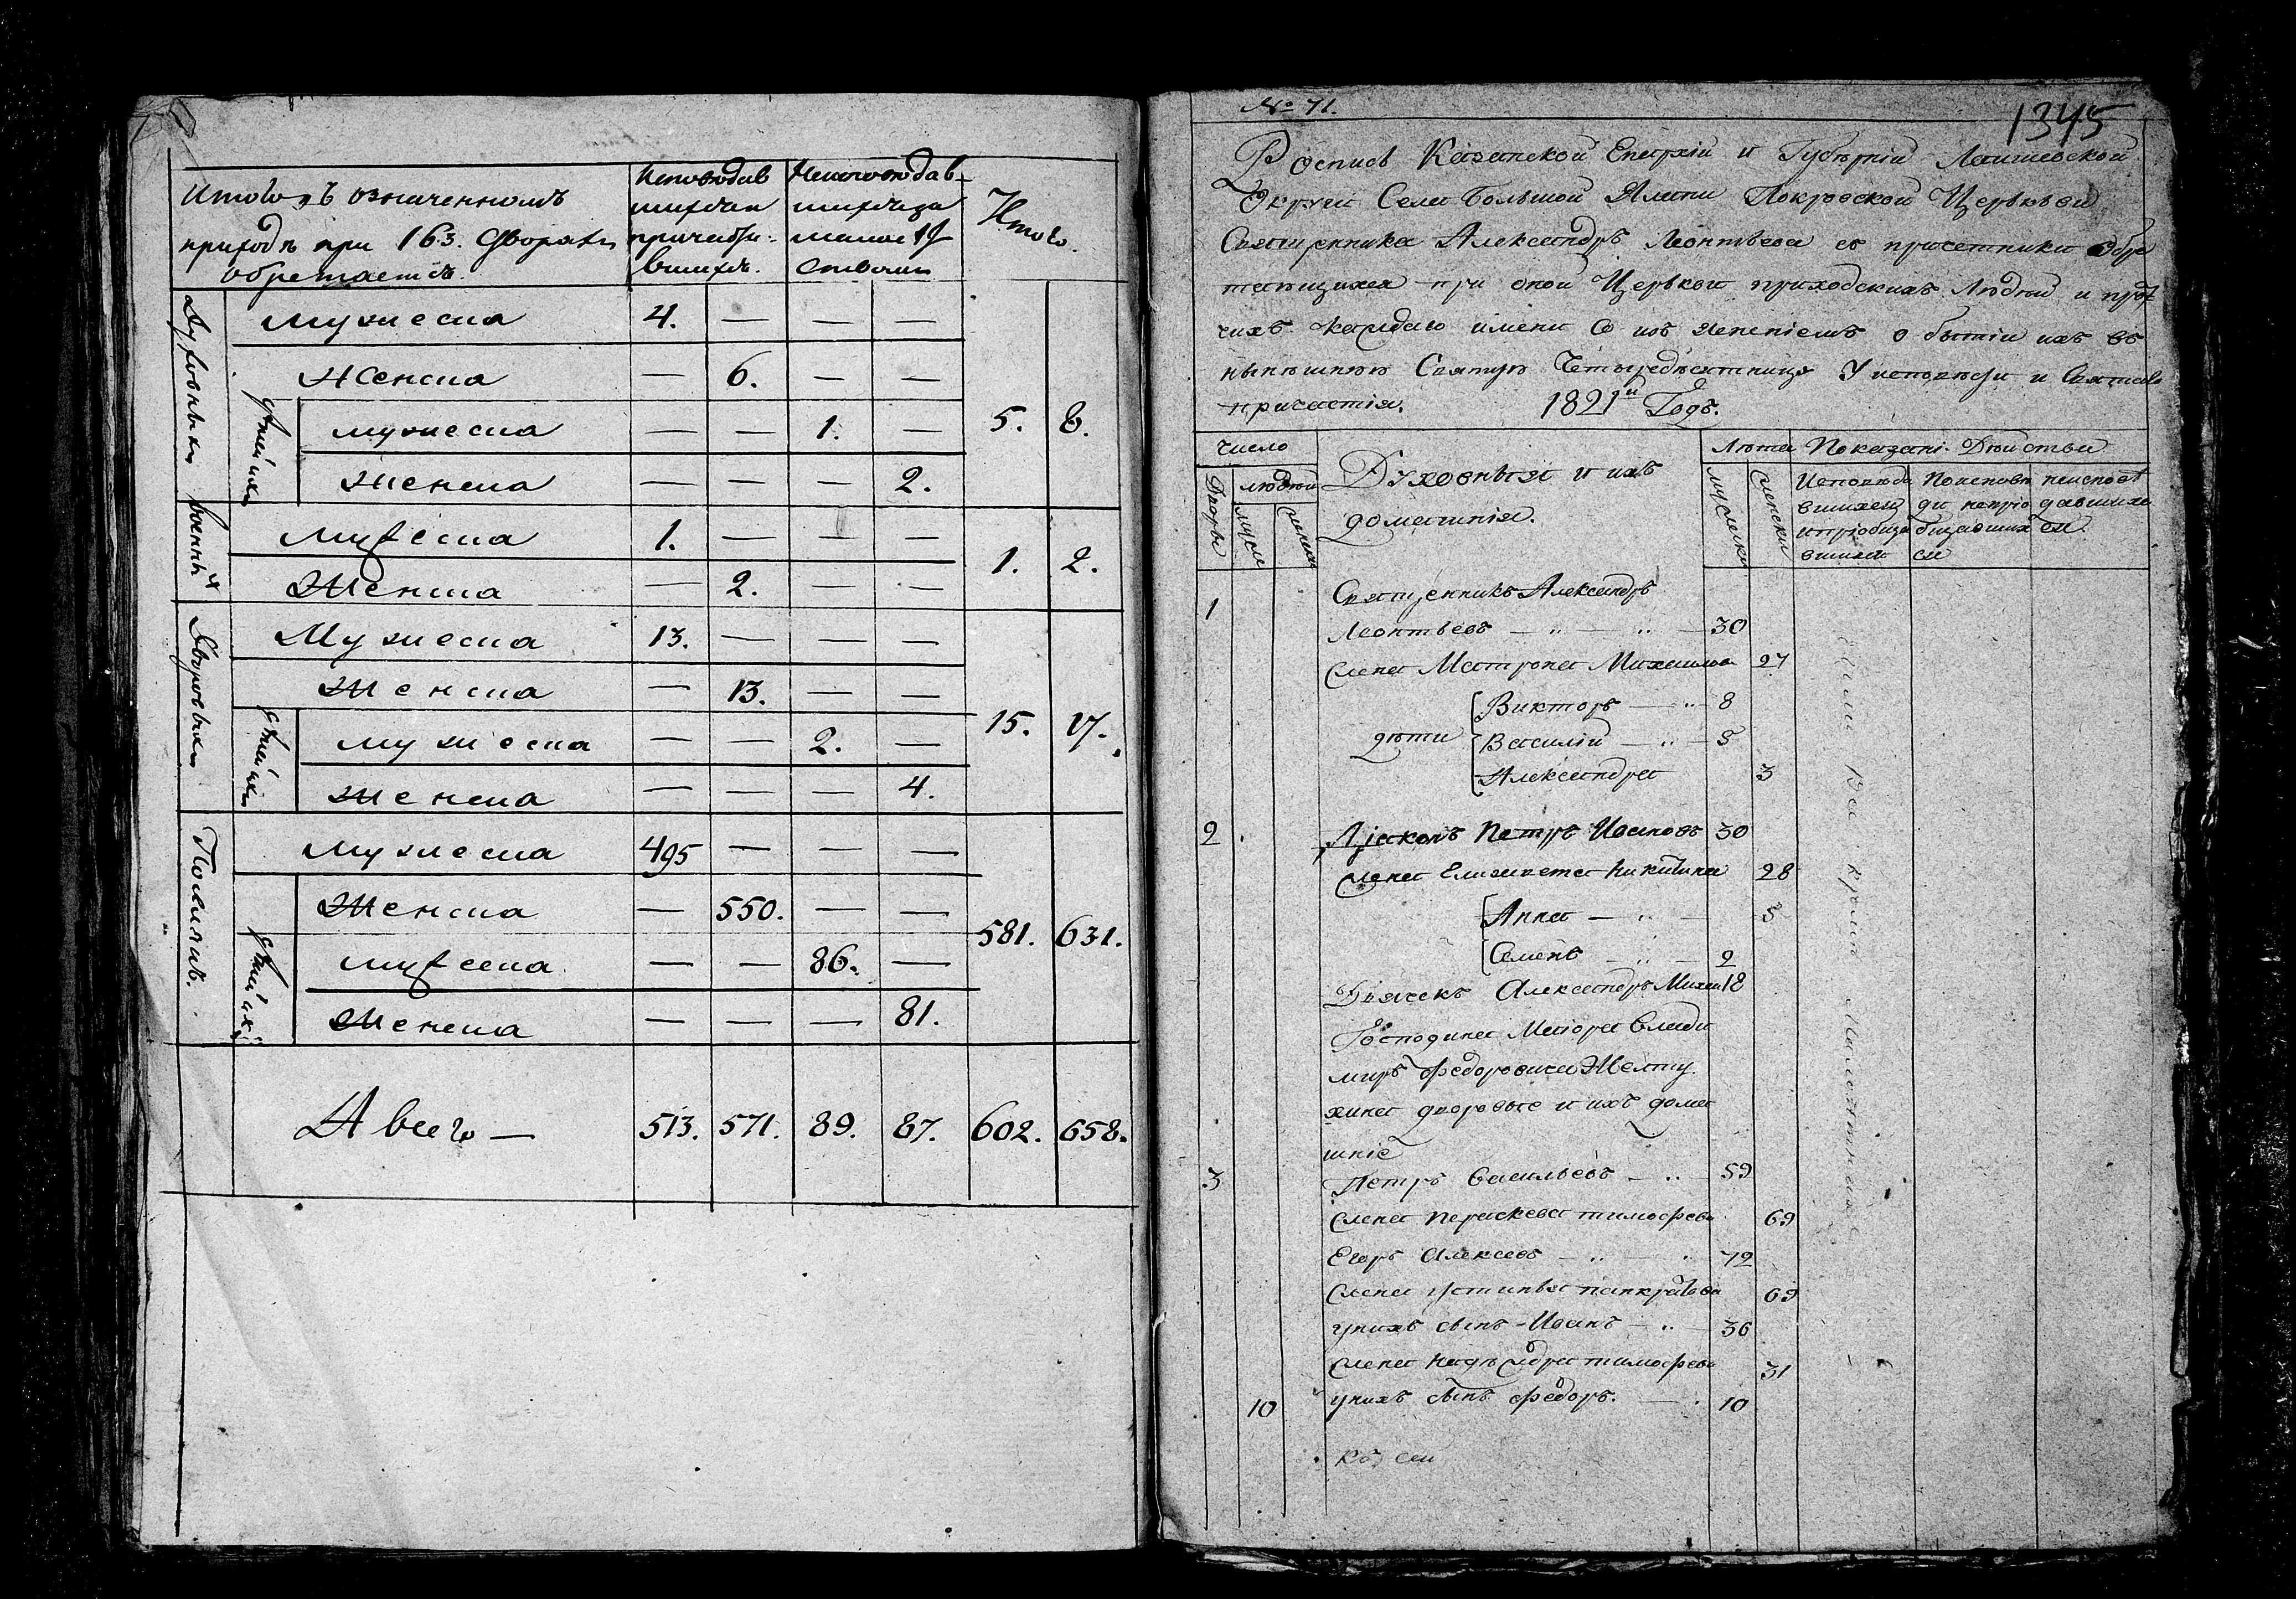 Итого въ означенномъ
приходѣ при 163. дворахъ
обретается.
Исповѣдав
шихся и
причасти-
вшихся.
Неисповѣдав-
шихся за
малолѣт
ствомъ
Итого.
Духовныхъ
мужеска 4. — — —
Женска — 6. — —
дѣтей ихъ
мужеска — — 1. —
женска — — — 2.
5. 8.
Военныхъ
мужеска 1. — — —
Женска — 2. — —
1. 2.
Дворовыхъ
Мужеска 13. — — —
Женска — 13. — —
дѣтей ихъ
мужеска — — 2. —
женска — — — 4.
15. 17.
Поселянъ.
мужеска 495 — — —
Женска — 550. — —
дѣтей ихъ
мужеска — — 86. —
Женска — — — 81.
581. 631.
А всего — 513. 571. 89. 87. 602. 658.
№ 71.
1345
Роспись Казанской Епархіи и Губерніи Лаишевской
Округи Села Большой Елги Покровской Церькви
Священника Александръ Леонтьева съ причетники обре
тающихся при оной Церькви приходскихъ людей и про
чихъ каждаго имени со изъявленіемъ о бытіи ихъ въ
нынѣшнюю Святую Четыредесятницу У исповѣди и Святаго
причастія. 1821й Годъ.
Число
Дворы
людей
муск
женск
Духовныя и ихъ
домашнія.
Лѣта
мужески
женски
Показані. Дѣйства
Исповѣда
вшихся
и пріобща
вшихся
По исповѣ
ди непріо
бщавших
ся
неисповѣ
давшихъ
ся.
1 Священникъ Александръ
Леонтьевъ — 30
Жена Матрона Михаилова 27
дѣти
Викторъ — 8
Василій — 5
Александра 3
2 Діаконъ Петръ Ивановъ 30
Жена Елизавета Никитина 28
Анна — 3
Семенъ — 2
Дьячекъ Александръ Михаи 18
Господина Маіора Влади
миръ Федоровича Желту
хина дворовые и ихъ дома
шніе
3 Петръ Васильевъ — 59
Жена Параскева тимофева 69
Егоръ Алексевъ — 72
Жена устинья панкратова 69
унихъ сынъ Иванъ — 36
Жена тимофева 31
10 унихъ сынъ Федоръ. — 10
Всѣ кромѣ малолѣтныхъ